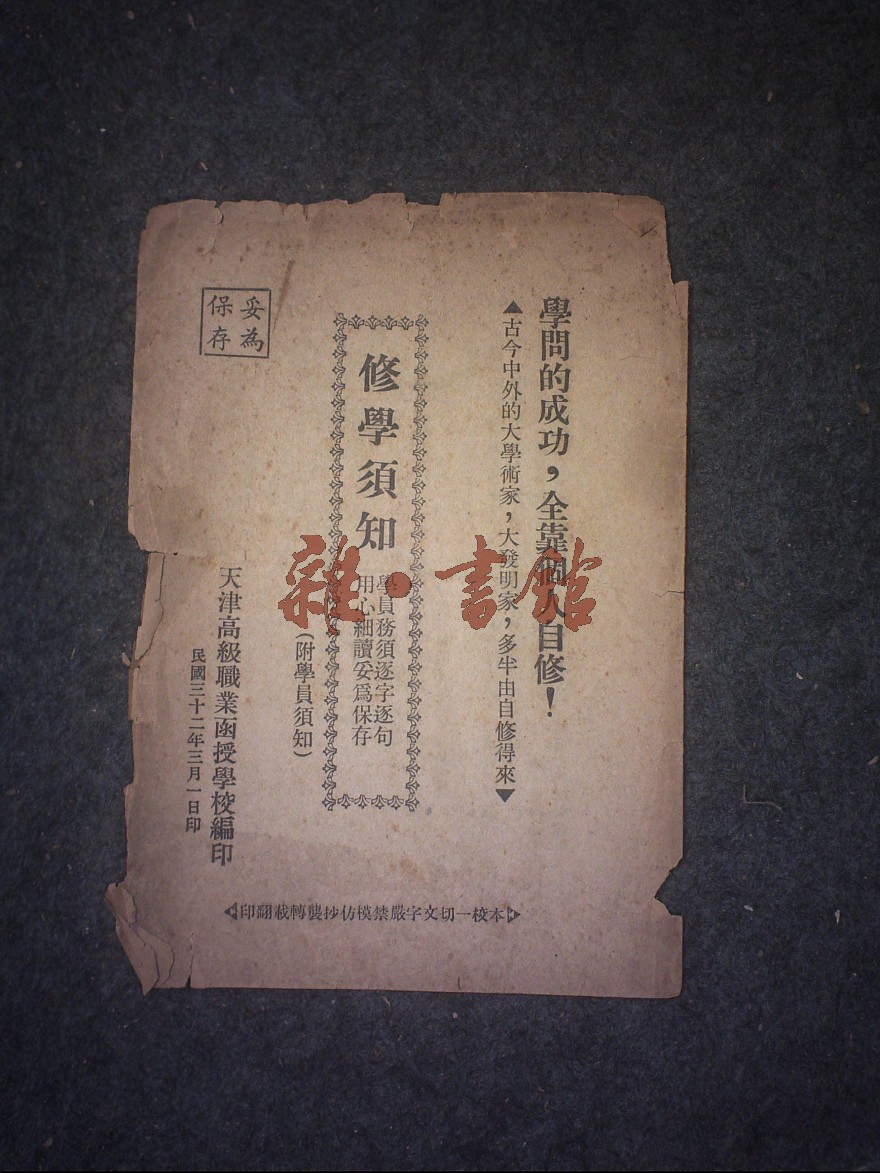 學問的成功，全靠個人自修！
▲古今中外的大學術家，大發明家，多半由自修得來▼
修學須知
學員務須逐字逐句
用心細讀妥爲保存
（附學員須知）
妥為
保存
天津高級職業函授學校編印
民國三十二年三月一日印
本校一切文字嚴禁模仿抄襲轉載翻印
雜·書館